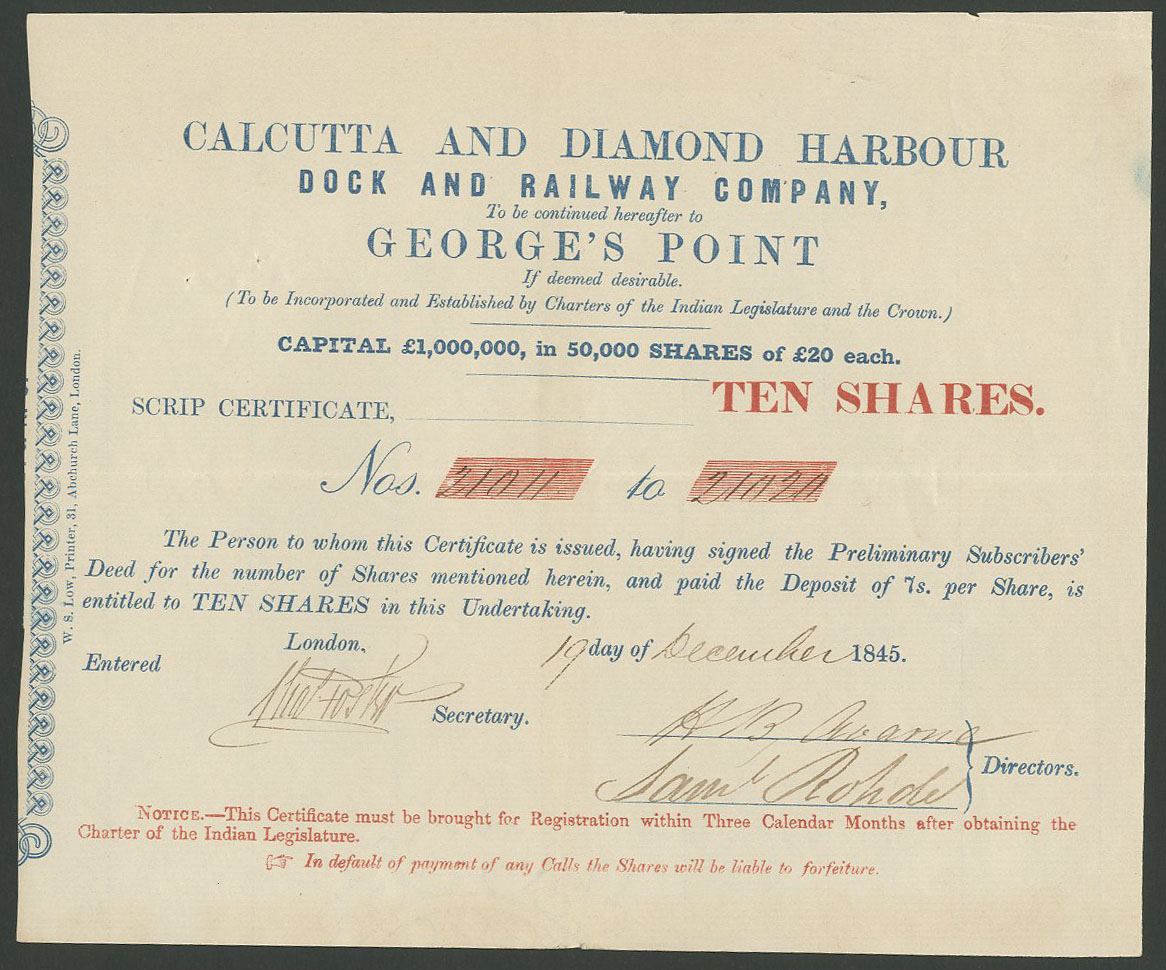 CALCUTTA AND DIAMOND HARBOUR
DOCK AND RAILWAY COMPANY,
To be continued hereafter to
GEORGE'S POINT
If deemed desirable.
(To be Incorporated and Established by Charters of the Indian Legislature and the Crown.)
CAPITAL £1,000,000, in 50,000 SHARES of £20 each.
TEN SHARES.
SCRIP CERTIFICATE,
Nos. 21011 to 21020
The Person to whom this Certificate is issued, having signed the Preliminary Subscribers'
Deed for the number of Shares mentioned herein, and paid the Deposit of 7s. per Share, is
entitled to TEN SHARES in this Undertaking.
London, 19 day of December 1845.
Entered
Secretary.
H B
Saml Rohde
Directors.
NOTICE.—This Certificate must be brought for Registration within Three Calendar Months after obtaining the
Charter of the Indian Legislature.
In default of payment of any Calls the Shares will be liable to forfeiture.
W. S. Low, Printer, 31, Abchurch Lane, London.